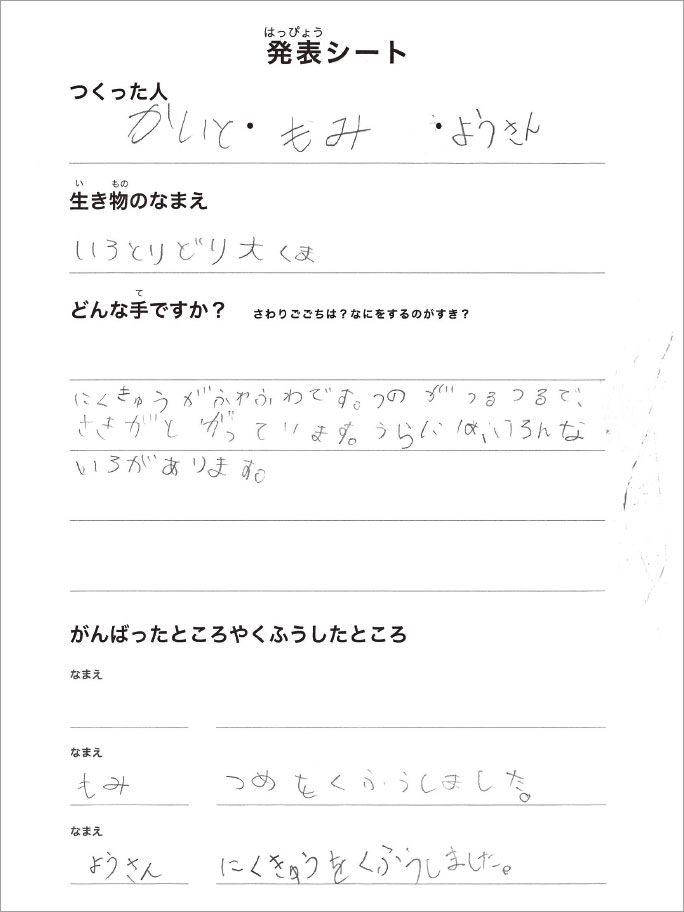 はっぴょう
発表シート
つくった人
かいと・もみ ・ようさん
い もの
生き物のなまえ
いろとりどり大くま
て
どんな手ですか? さわりごごちは?なにをするのがすき?
にくきゅうがふわふわです。つのがつるつるで、
さきがとがっています。うらには、いろんな
いろがあります。
がんばったところやくふうしたところ
なまえ
なまえ
もみ つめをくふうしました。
なまえ
ようさん にくきゅうをくふうしました。